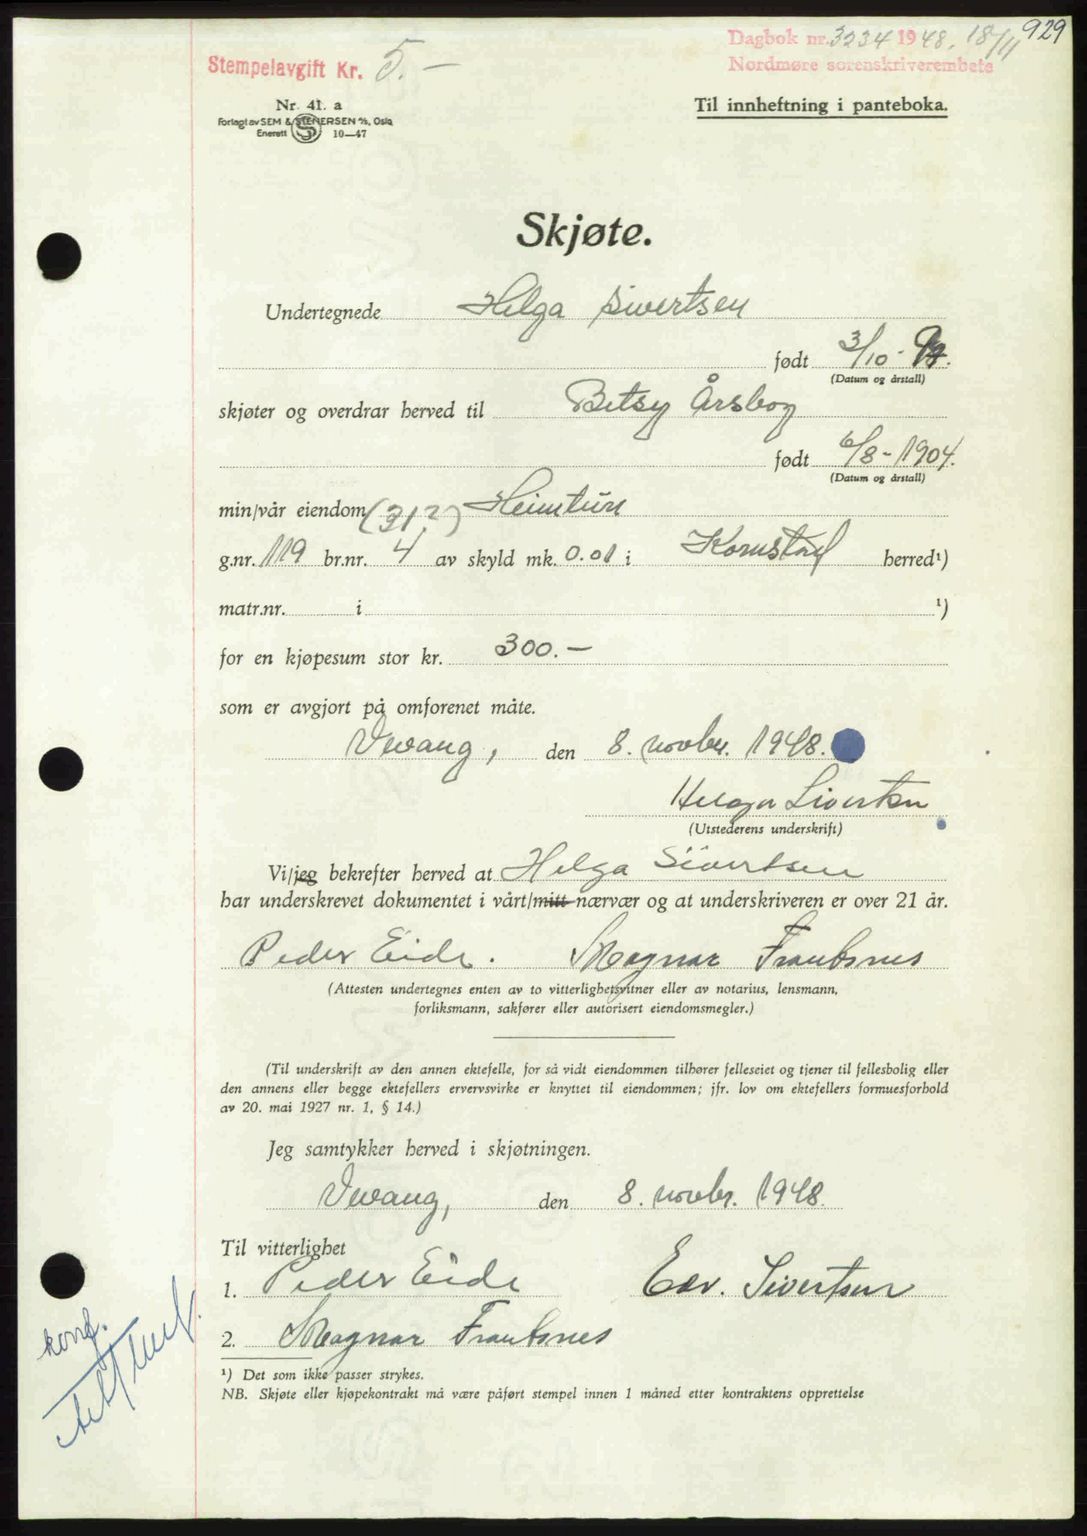 929
Dagbok nr. 3234 1948. 18/11
Nordmøre sorenskriverembete
Stempelavgift Kr. 5.—
Nr. 41. a
Forlagt av SEM & STENERSEN A/S, Oslo
Enerett 10—47
Til innheftning i panteboka.
Skjøte.
Undertegnede Helga Sivertsen
født 3/10-
(Datum og årstall)
skjøter og overdrar herved til Betsy Årsbog
født 6/8-1904.
(Datum og årstall)
min/vår eiendom (312) Heimtun
g.nr. 119 br.nr. 4 av skyld mk. 0.01 i Kornstad herred¹)
matr.nr. i ¹)
for en kjøpesum stor kr. 300.—
som er avgjort på omforenet måte.
Vevang, den 8. novbr. 1948.
Helga Sivertsen
(Utstederens underskrift)
Vi/jeg bekrefter herved at Helga Sivertsen
har underskrevet dokumentet i vårt/mitt nærvær og at underskriveren er over 21 år.
Peder Eide. Magnar Frantsnes
(Attesten undertegnes enten av to vitterlighetsvitner eller av notarius, lensmann,
forliksmann, sakfører eller autorisert eiendomsmegler.)
(Til underskrift av den annen ektefelle, for så vidt eiendommen tilhører felleseiet og tjener til fellesbolig eller
den annens eller begge ektefellers ervervsvirke er knyttet til eiendommen; jfr. lov om ektefellers formuesforhold
av 20. mai 1927 nr. 1, § 14.)
Jeg samtykker herved i skjøtningen.
Vevang, den 8. novbr. 1948.
Til vitterlighet
1. Peder Eide Edv. Sivertsen
2. Magnar Frantsnes
konf.
¹) Det som ikke passer strykes.
NB. Skjøte eller kjøpekontrakt må være påført stempel innen 1 måned etter kontraktens opprettelse